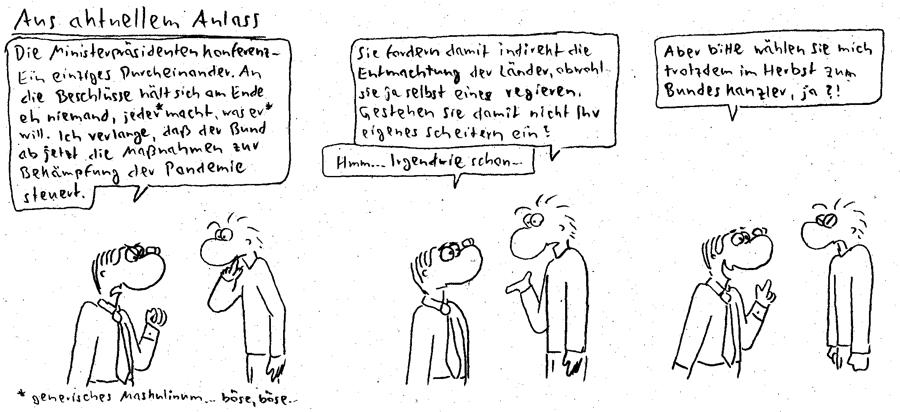 Aus aktuellem Anlass
Die Ministerpräsidentenkonferenz-
Ein einziges Durcheinander. An
die Beschlüsse hält sich am Ende
eh niemand, jeder* macht, was er*
will. Ich verlange, daß der Bund
ab jetzt die Maßnahmen zur
Bekämpfung der Pandemie
steuert.
Sie fordern damit indirekt die
Entmachtung der Länder, obwohl
sie ja selbst eines regieren.
Gestehen Sie damit nicht Ihr
eigenes Scheitern ein?
Hmm... Irgendwie schon...
Aber bitte wählen Sie mich
trotzdem im Herbst zum
Bundeskanzler, ja?!
* generisches Maskulinum... böse, böse...